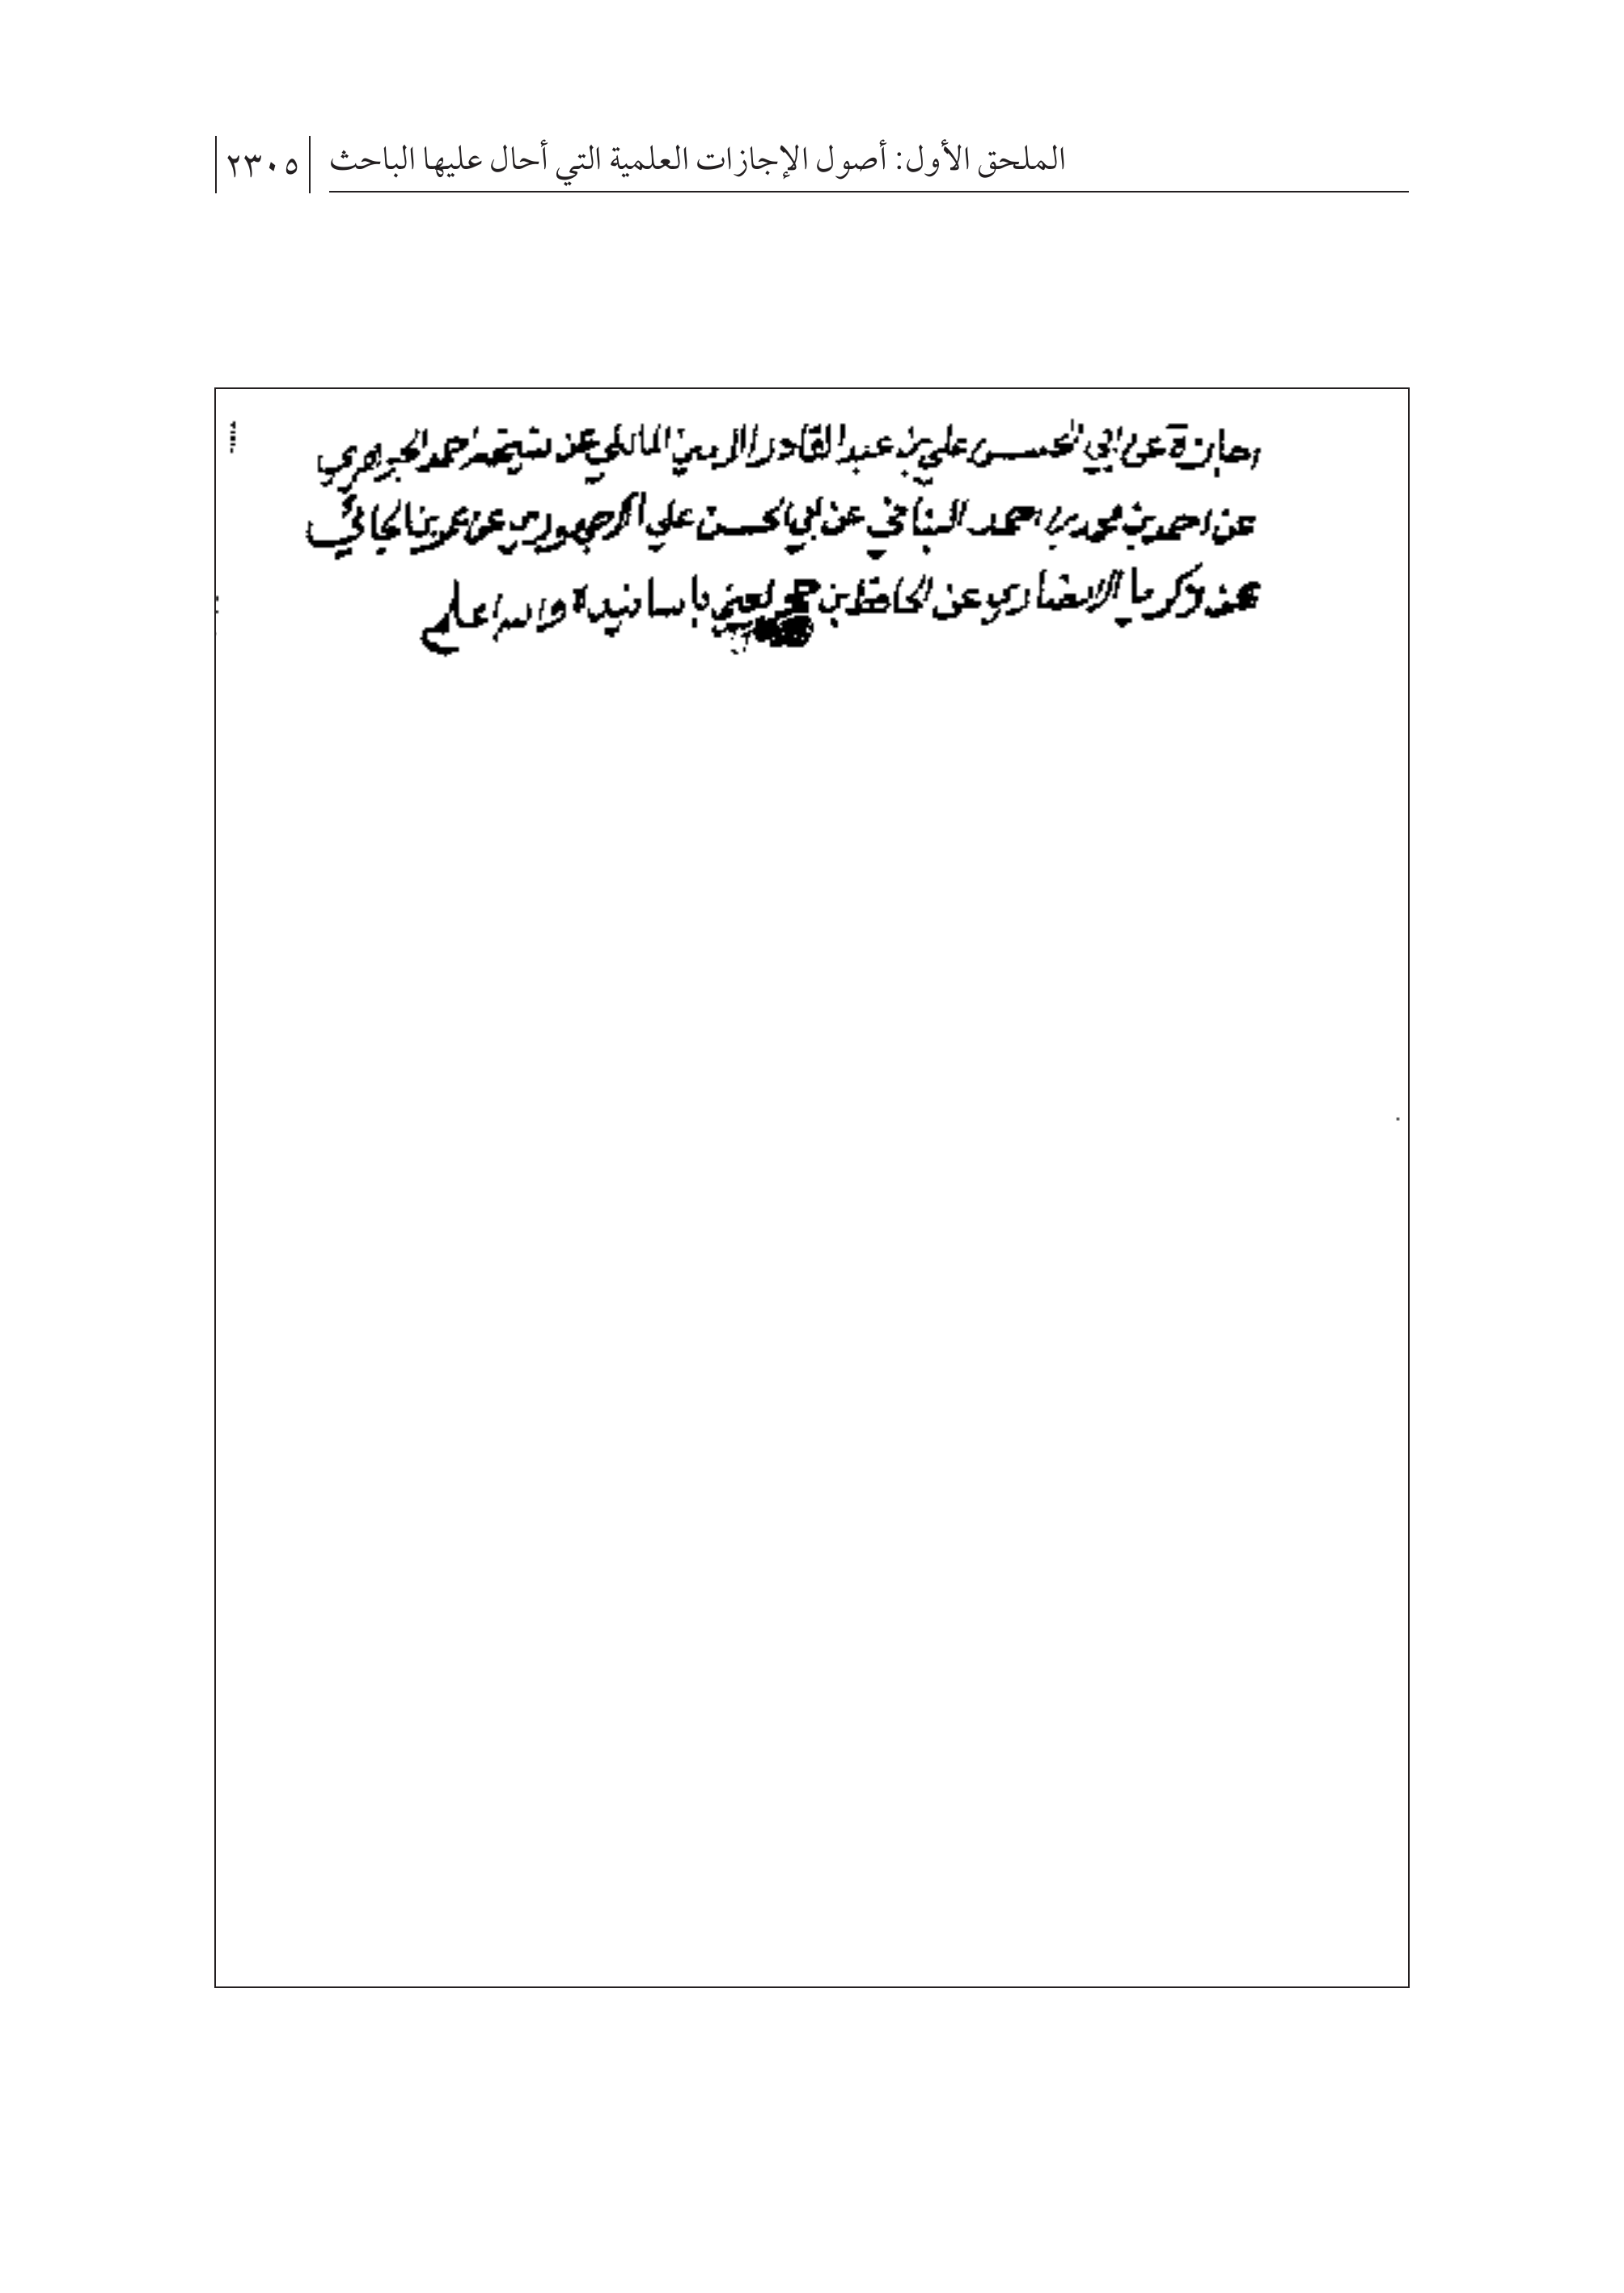 الملحق الأول: أصول الإجازات العلمية التي أحال عليها الباحث ٢٣٠٥
واجازة عن ابي الحسن علي بن عبد القادر الامين المالكي عن شيخه احمد الجوهري
عن احمد بن محمد بن احمد البناني عن ابي الحسن علي الاجهوري عن عمر بن الجاي
عن زكريا الانصاري عن الحافظ بن حجر باسانيده والله اعلم